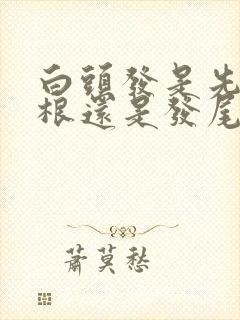 白頭發是先
根還是發尾
蕭莫愁